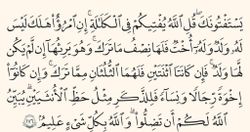 يَسْتَفْتُونَكَ قُلِ ٱللَّهُ يُفْتِيكُمْ فِى ٱلْكَلَـٰلَةِ إِنِ ٱمْرُؤٌا۟ هَلَكَ لَيْسَ
لَهُۥ وَلَدٌ وَلَهُۥٓ أُخْتٌ فَلَهَا نِصْفُ مَا تَرَكَ وَهُوَ يَرِثُهَآ إِن لَّمْ يَكُن
لَّهَا وَلَدٌ فَإِن كَانَتَا ٱثْنَتَيْنِ فَلَهُمَا ٱلثُّلُثَانِ مِمَّا تَرَكَ وَإِن كَانُوٓا۟
إِخْوَةً رِّجَالًا وَنِسَآءً فَلِلذَّكَرِ مِثْلُ حَظِّ ٱلْأُنثَيَيْنِ يُبَيِّنُ
ٱللَّهُ لَكُمْ أَن تَضِلُّوا۟ وَٱللَّهُ بِكُلِّ شَىْءٍ عَلِيمٌۢ ١٧٦